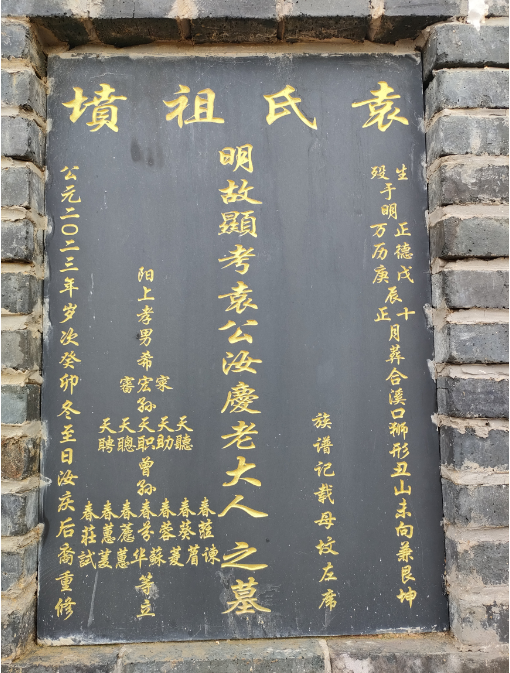 袁氏祖墳
生殁于明正德戊万历庚辰十正月葬合溪口狮形丑山未向兼艮坤
族谱记载母坟左席
明故顯考袁公汝慶老大人之墓
阳上孝男希
宏審
孙
天聽
天助
天职
天聰
天聘
曾孙
春
春葵
春蓉
春芬
春
春蕙
春莊
蘇华
等立
公元二〇二三年岁次癸卯冬至日汝庆后裔重修